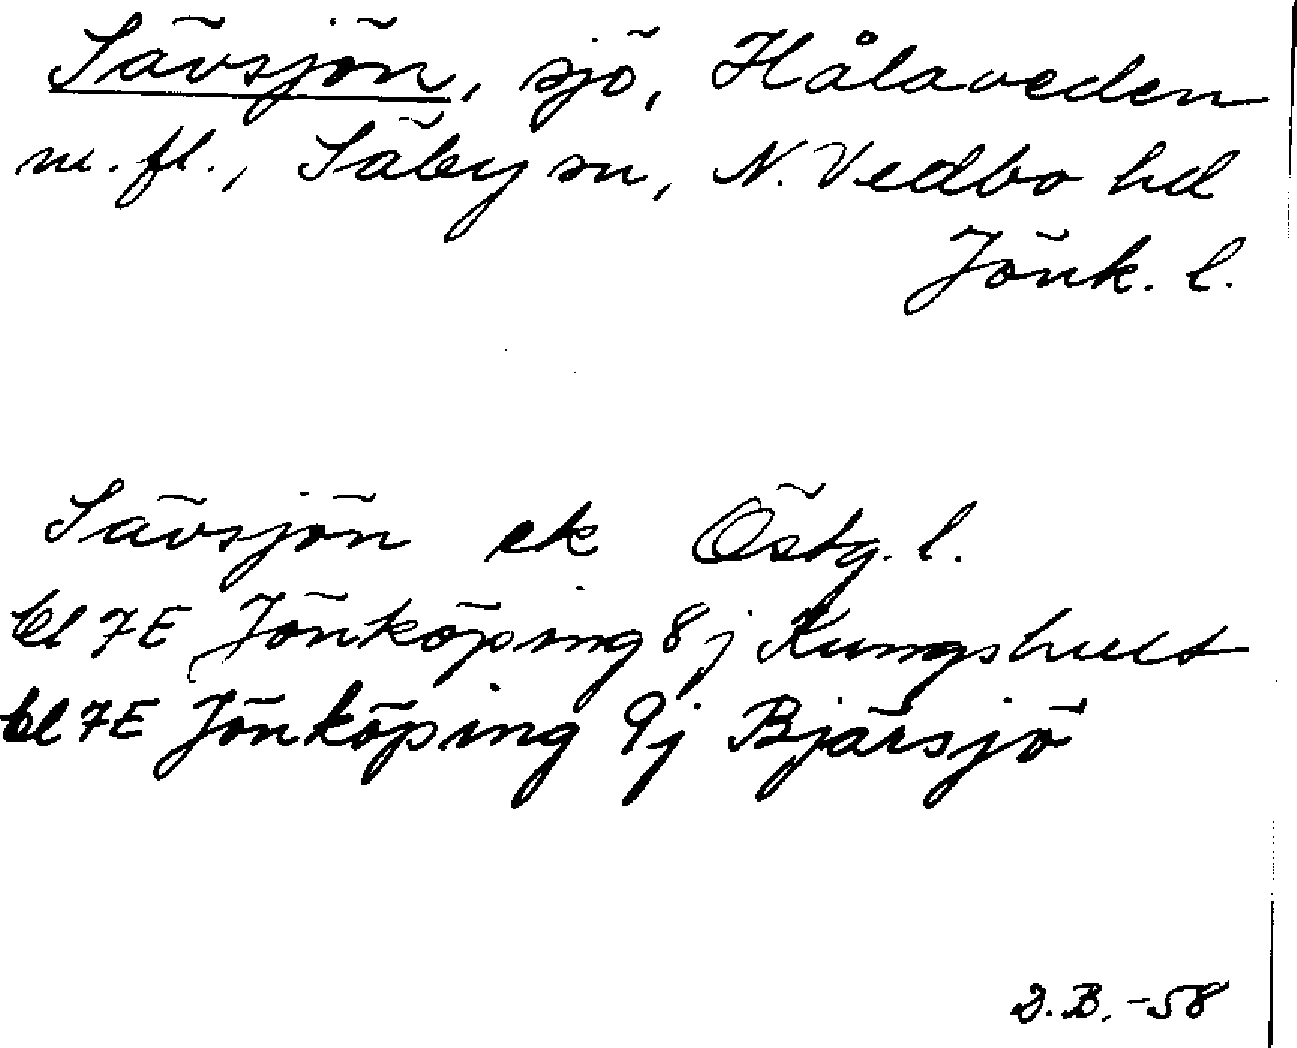 Sävsjön, sjö, Hålaveden
m. fl., Säby sn, N. Vedbo hd
Jönk. l.
Sävsjön ek Östg. l.
bl 7E Jönköping 8j Kungshult
bl 7E Jönköping 9j Bjärsjö
D.B. -58